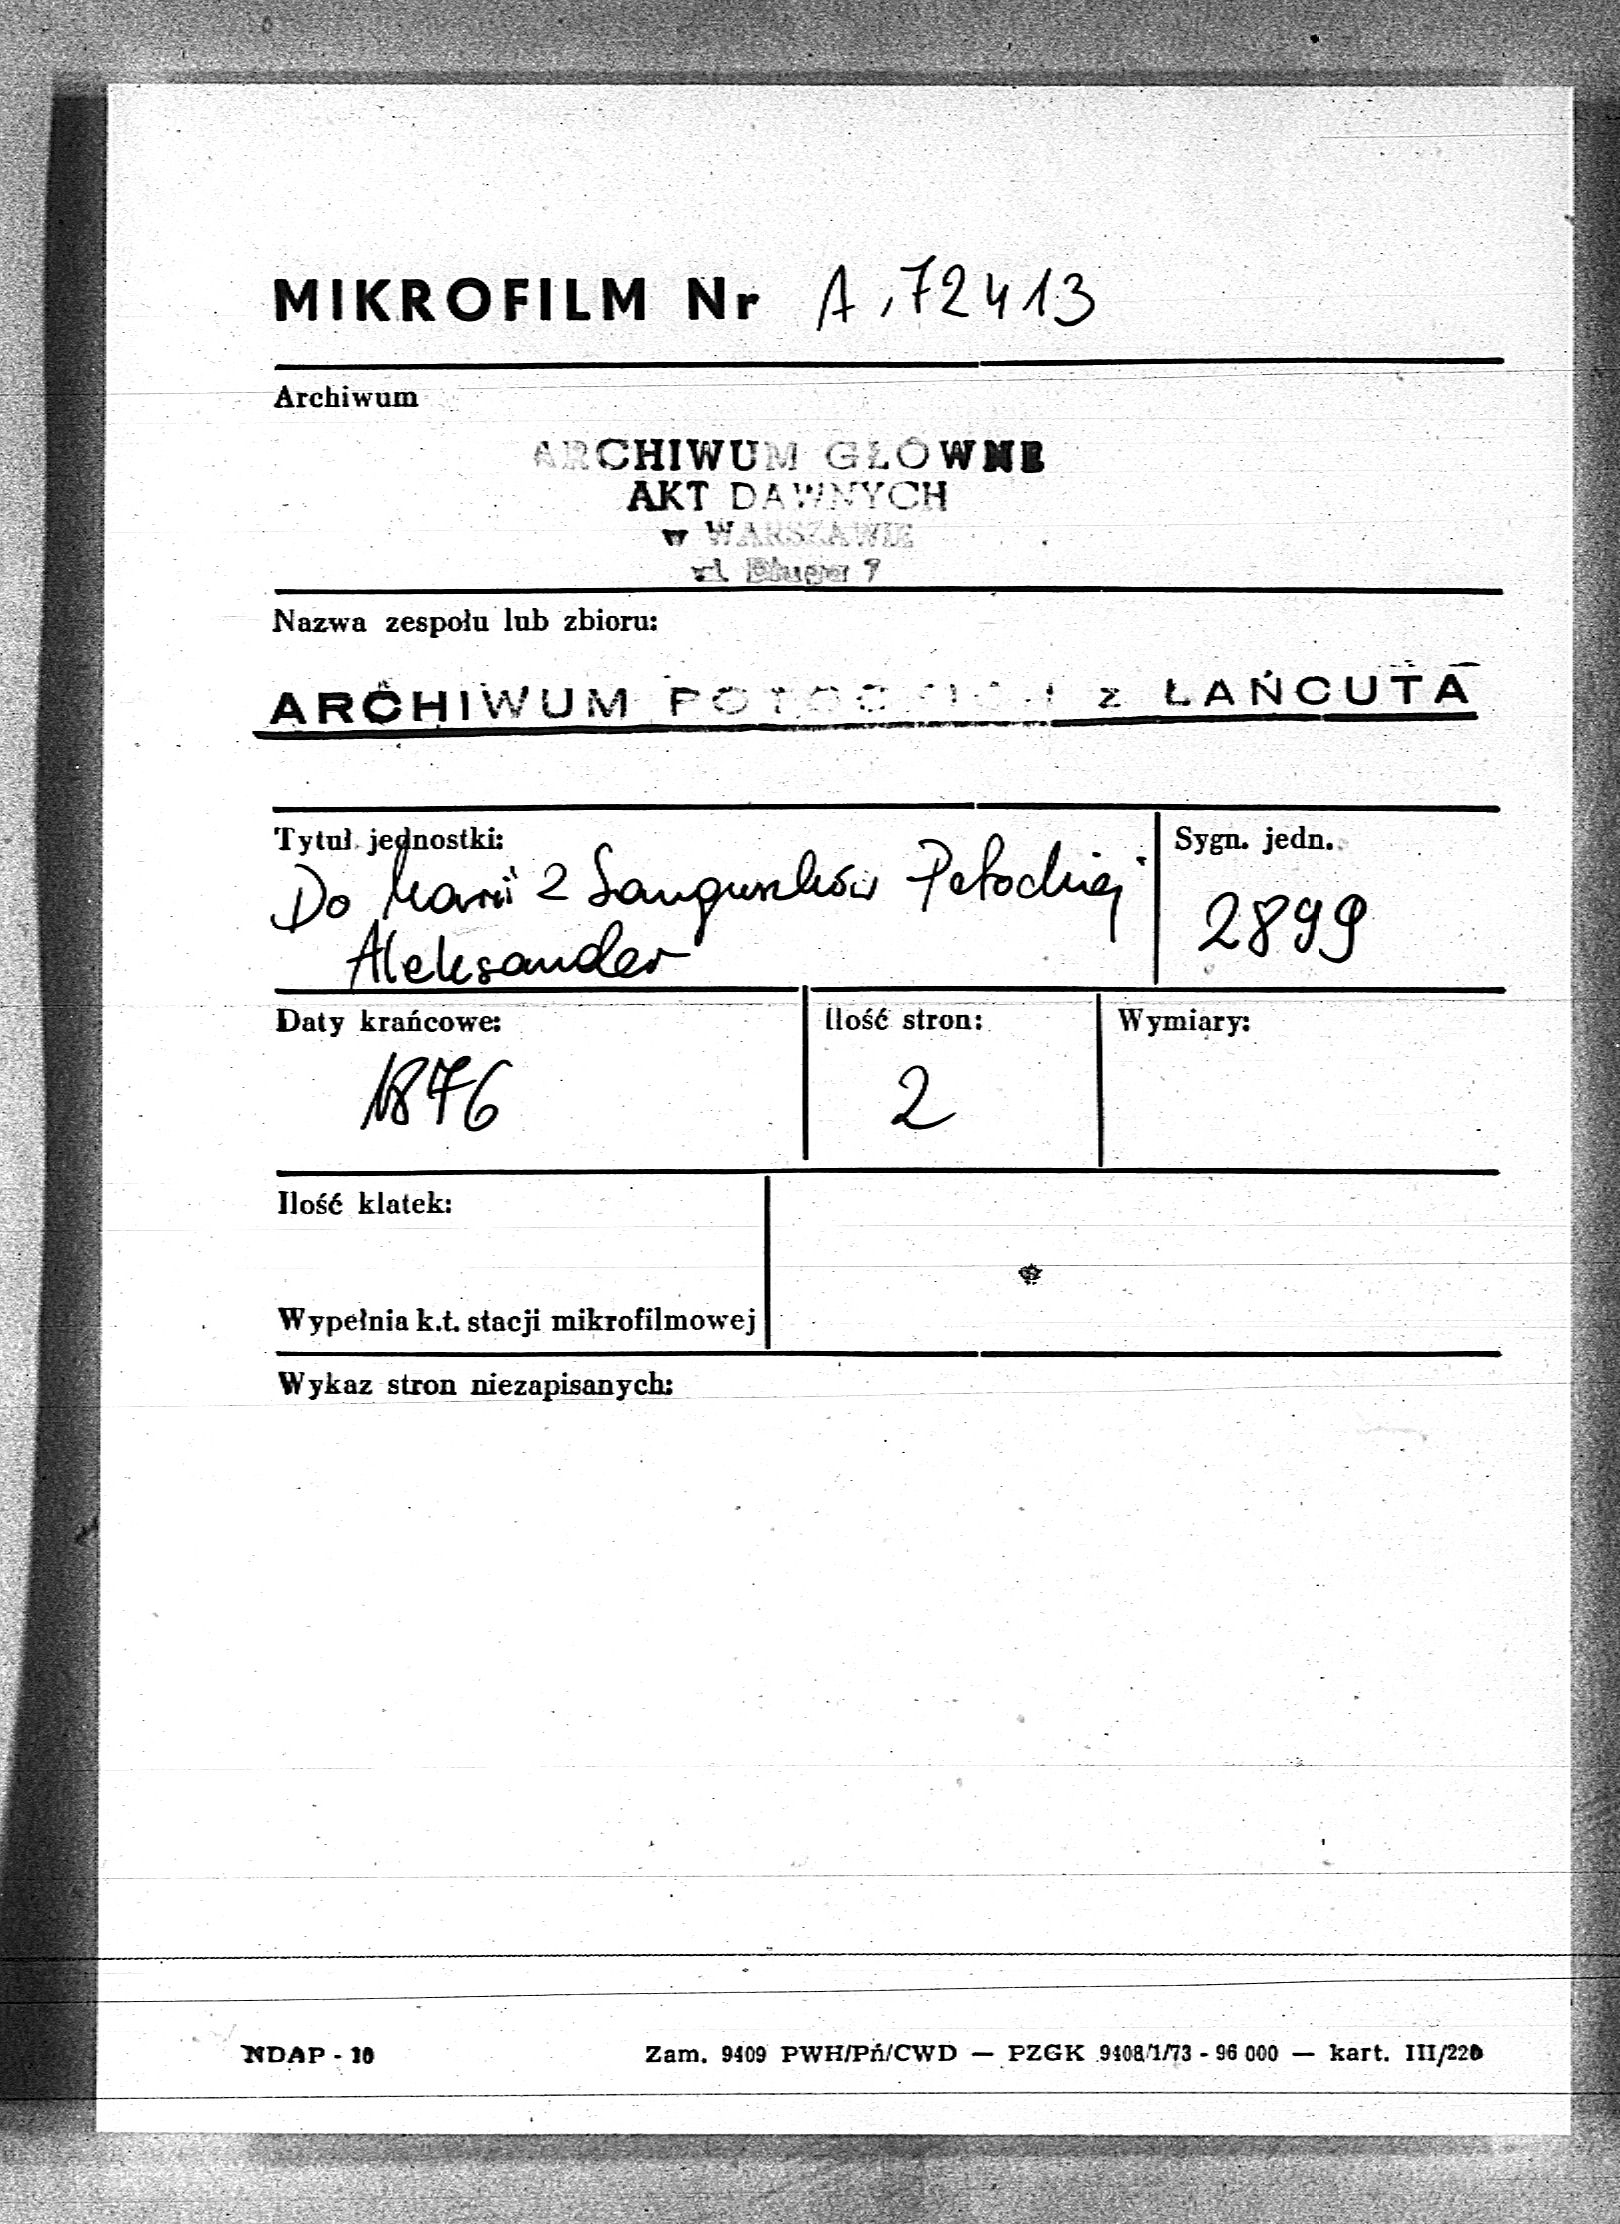 MIKROFILM Nr A, 72413
Archiwum
ARCHIWUM GŁÓWNE
AKT DAWNYCH
w WARSZAWIE
ul. Długa 7
Nazwa zespołu lub zbioru:
ARCHIWUM POTOCKICH z ŁAŃCUTA
Tytuł jednostki:
Sygn. jedn.
Do Marii z Sanguszków Potockiej
Aleksander
2899
Daty krańcowe:
Ilość stron:
Wymiary:
1876
2
Ilość klatek:
Wypełnia k.t. stacji mikrofilmowej
Wykaz stron niezapisanych:
NDAP - 10
Zam. 9409 PWH/Pń/CWD — PZGK 9408/1/73 - 96 000 — kart. III/220